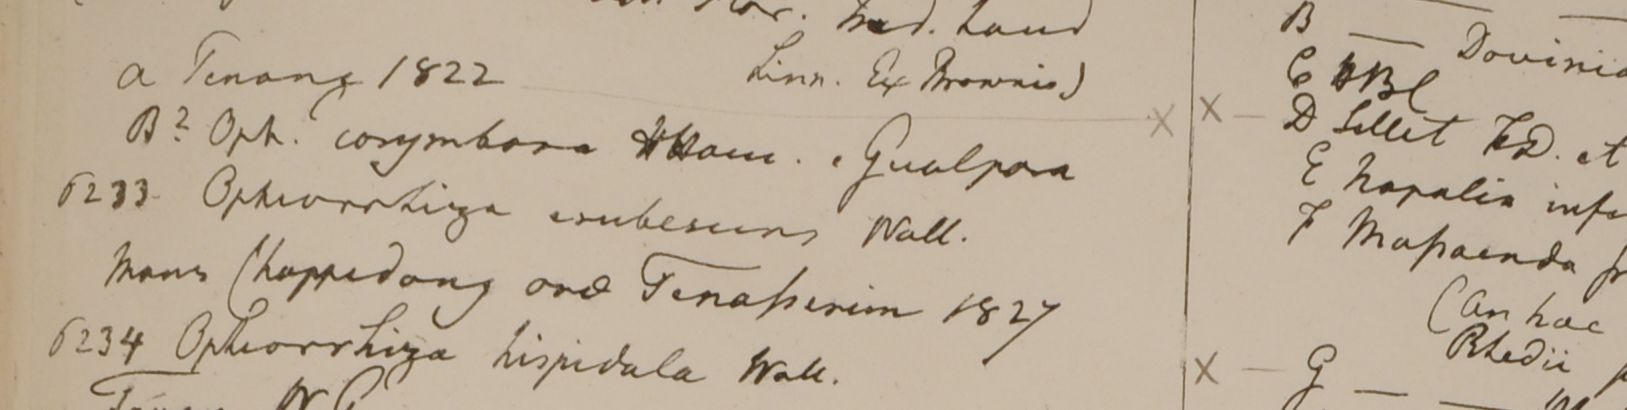 Hor. Med. Laud
a Penang 1822 Linn. Ex Brownio)
B? Oph. corymbosa HHam. Gualpara
6233 Ophiorrhiza erubescens Wall.
Mons Chappedong ora Tenasserim 1827
6234 Ophiorrhiza hispidula Wall.
B — Dovinia
C HBC
D Sillet FD. et
E Napalia infe
F Mussaenda fr
(An hac
Rhedii
G — —